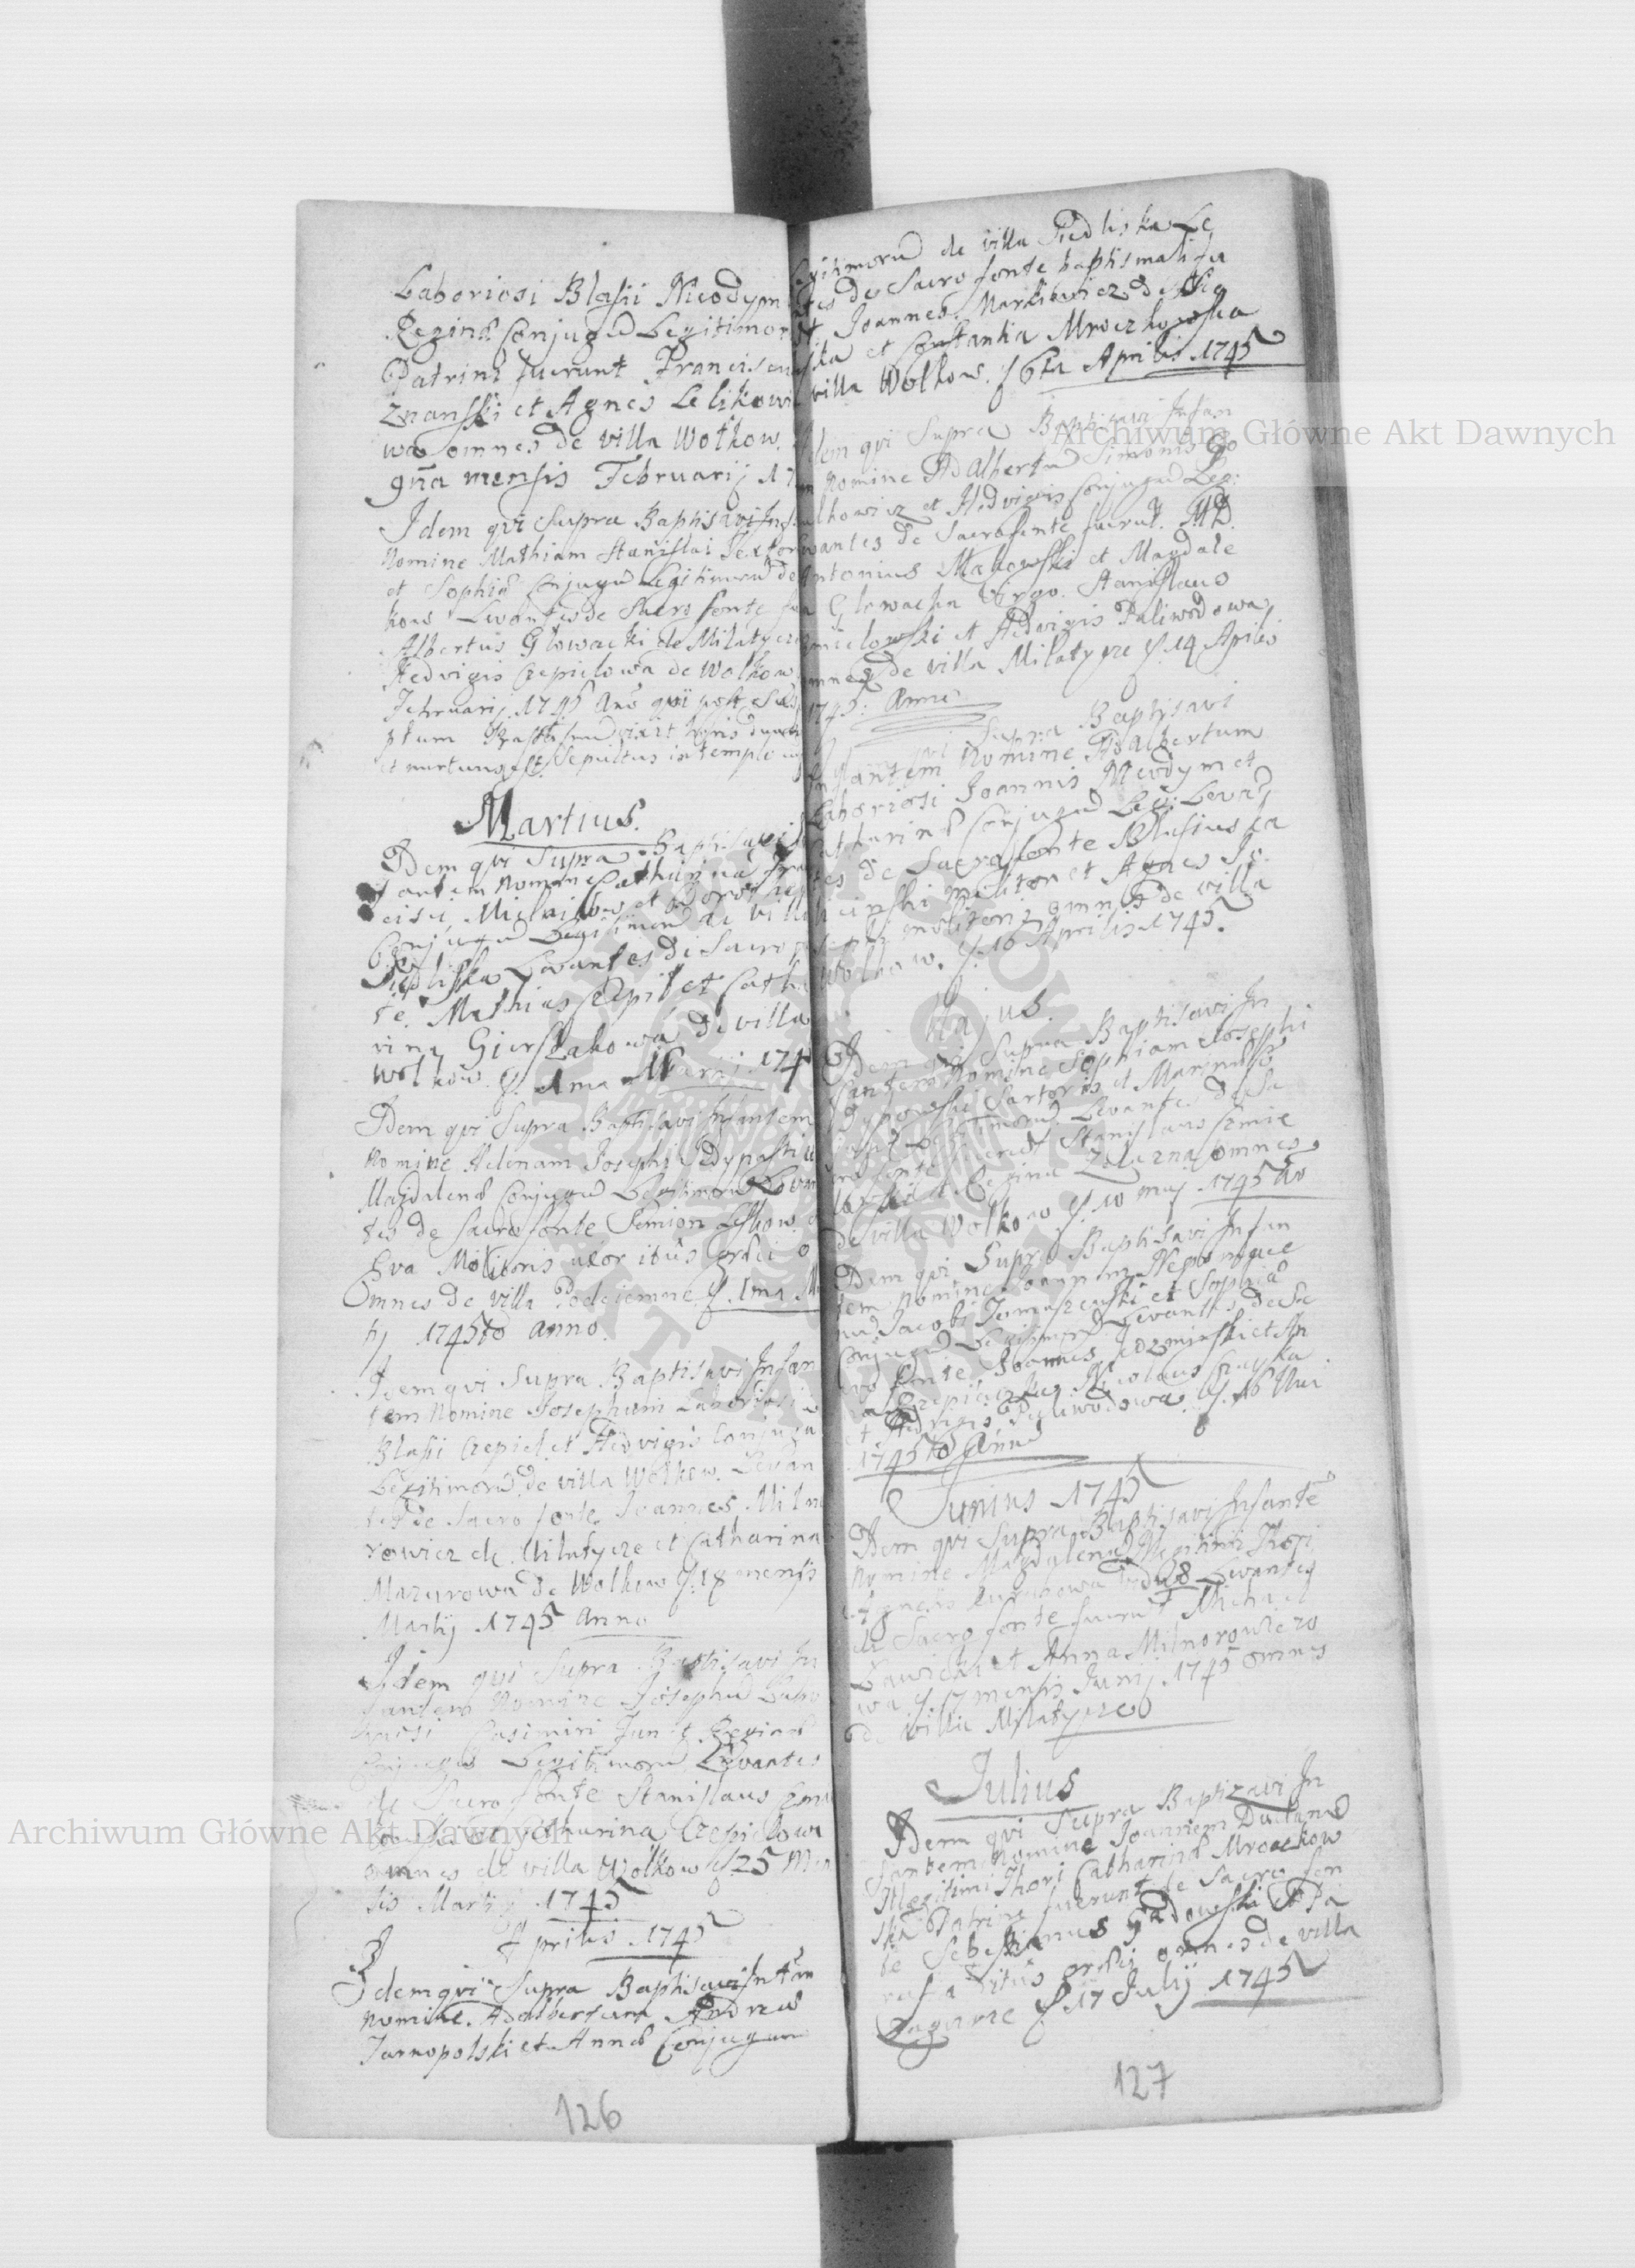 Laboriosi Blasii Nieodym
Reginæ Conjugū Legitimor
Patrini fuerunt Francis
znanski et Agnes Lelikowi
wa omnes de villa Wołkow.
9na mensis Februarij 17
Idem qvi Supra Baptisavi Inf
nomine Mathiam Stanislai Textor
et Sophiæ Conjugū Legitimorū de
kow Levantes de Sacro fonte fu
Albertus Głowacki de Milatycze
Hedvigis Czepielowa de Wolkow
Februarij 1745 Ano qvi post Sus
ptum Baptismū vixit
et mortuus est Sepultus in templo
Martius.
Idem qvi Supra Baptisavi
fantem nomine Catharinā Fra
cisci et Doroth
Conjugū Legitimorū de vill
Siedliska Levantes de Sacro
te Mathias Czepil et Catha
rina Gierszakowa de villa
Wolkow. 174
Idem qvi Supra Baptisavi Infantem
nomine Helenam Josephi
Magdalenæ Conjugū Legitimorū Levan
tes de Sacro fonte Semion
Eva Molitoris uxor ritûs
Omnes de villa Podciemne
tij 1745to anno.
Idem qvi Supra Baptisavi Infan
tem nomine Josephum Laboriosi
Blasii Czepiel et Hedvigis Conjugū
Legitimorū de villa Wolkow. Levan
tes de Sacro fonte Joannes Miln
rowicz de Milatycze et Catharina
Mazurowa de Wolkow 18 mensis
Martij 1745 Anno
Idem qvi Supra Baptisavi In
fantem nomine Josephū Labo
riosi Casimiri Jun et Reginæ
Conjugū Legitimorū Levantes
de Sacro fonte Stanislaus
Catharina Czepielowa
omnes de villa Wolkow 25 Men
sis Martij 1745
Aprilis 1745
Idem qvi Supra Baptisavi Infātm
nomine Adalbertum Andreæ
Tarnopolski et Annæ Conjugum
126
gitimorū de villa Siedliska Le
tes de Sacro fonte baptismali fu
t Joannes Markiewicz de
ska et Constantia Mroczkowska
villa Wolkow. 6ta Aprilis 1745
dem qvi Supra Baptisavi Infan
nomine Adalbertū Simonis
lkowicz et Hedvigis Conjugū Leg:
vantes de Sacro fonte fuerūt. MD.
Antonius Makowski et Magdale
Głowacka Virgo. Stanislaus
mielowski et Hedvigis Paliwodowa
omnes de villa Milatycze 14 Aprilis
1745. Anno
Supra Baptisavi
Infantem nomine Adalbertum
Laboriosi Joannis Nieodym et
Catharinæ Conjugū Leg: Levā
tes de Sacro fonte Blasius Ka
licinski Molitor et Agnes
molitoris omnes de villa
Wolkow. 16 Aprilis 1745.
Majus.
Idem qvi Supra Baptisavi In
fantem nomine Sophiam Josephi
Sartoris et Mariannæ
Legitimorū Levantes de Sa
cro fonte fuerūt Stanislaus Czmie
lowski et Regina Zelazna omnes
de villa Wolkow 10 maij 1745to
Idem qvi Supra Baptisavi Infan
tem nomine Joannem Nepomuce
nū Jacobi Tomaszewski et Sophiæ
Conjugū Legitimorū Levantes de Sa
cro fonte Joannes et An
na Nicolaus Czayka
et Hedvigis Paliwodowa. 16 Mai
1745to Anno
Junius 1745
Idem qvi Supra Baptisavi Infantē
nomine Magdalenā Illegitimi Thori
Agnetis viduæ Levantes
de Sacro fonte fuerūt Michael
Sawicki et Anna Milnorowiczo
wa 17 mensis Junij 1745 omnes
de villa Milatycze
Julius
Idem qvi Supra Baptizavi In
fantem nomine Joannem
Illegitimi Thori Catharinæ Mroczkow
ska Patrini fuerunt de Sacro fon
te Sebestianus Gadowski et Pa
rasia ritûs omnes de villa
Zagurze 17 Julij 1745
127
Archiwum Główne Akt Dawnych
Archiwum Główne Akt Dawnych